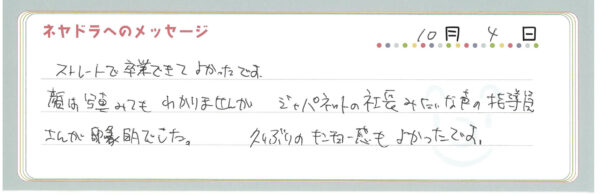 ネヤドラへのメッセージ
10月 4日
ストレートで卒業できてよかったです。
顔は写真みてもわかりませんが ジャパネットの社長みたいな声の指導員
さんが印象的でした。 久しぶりの 感もよかったです。